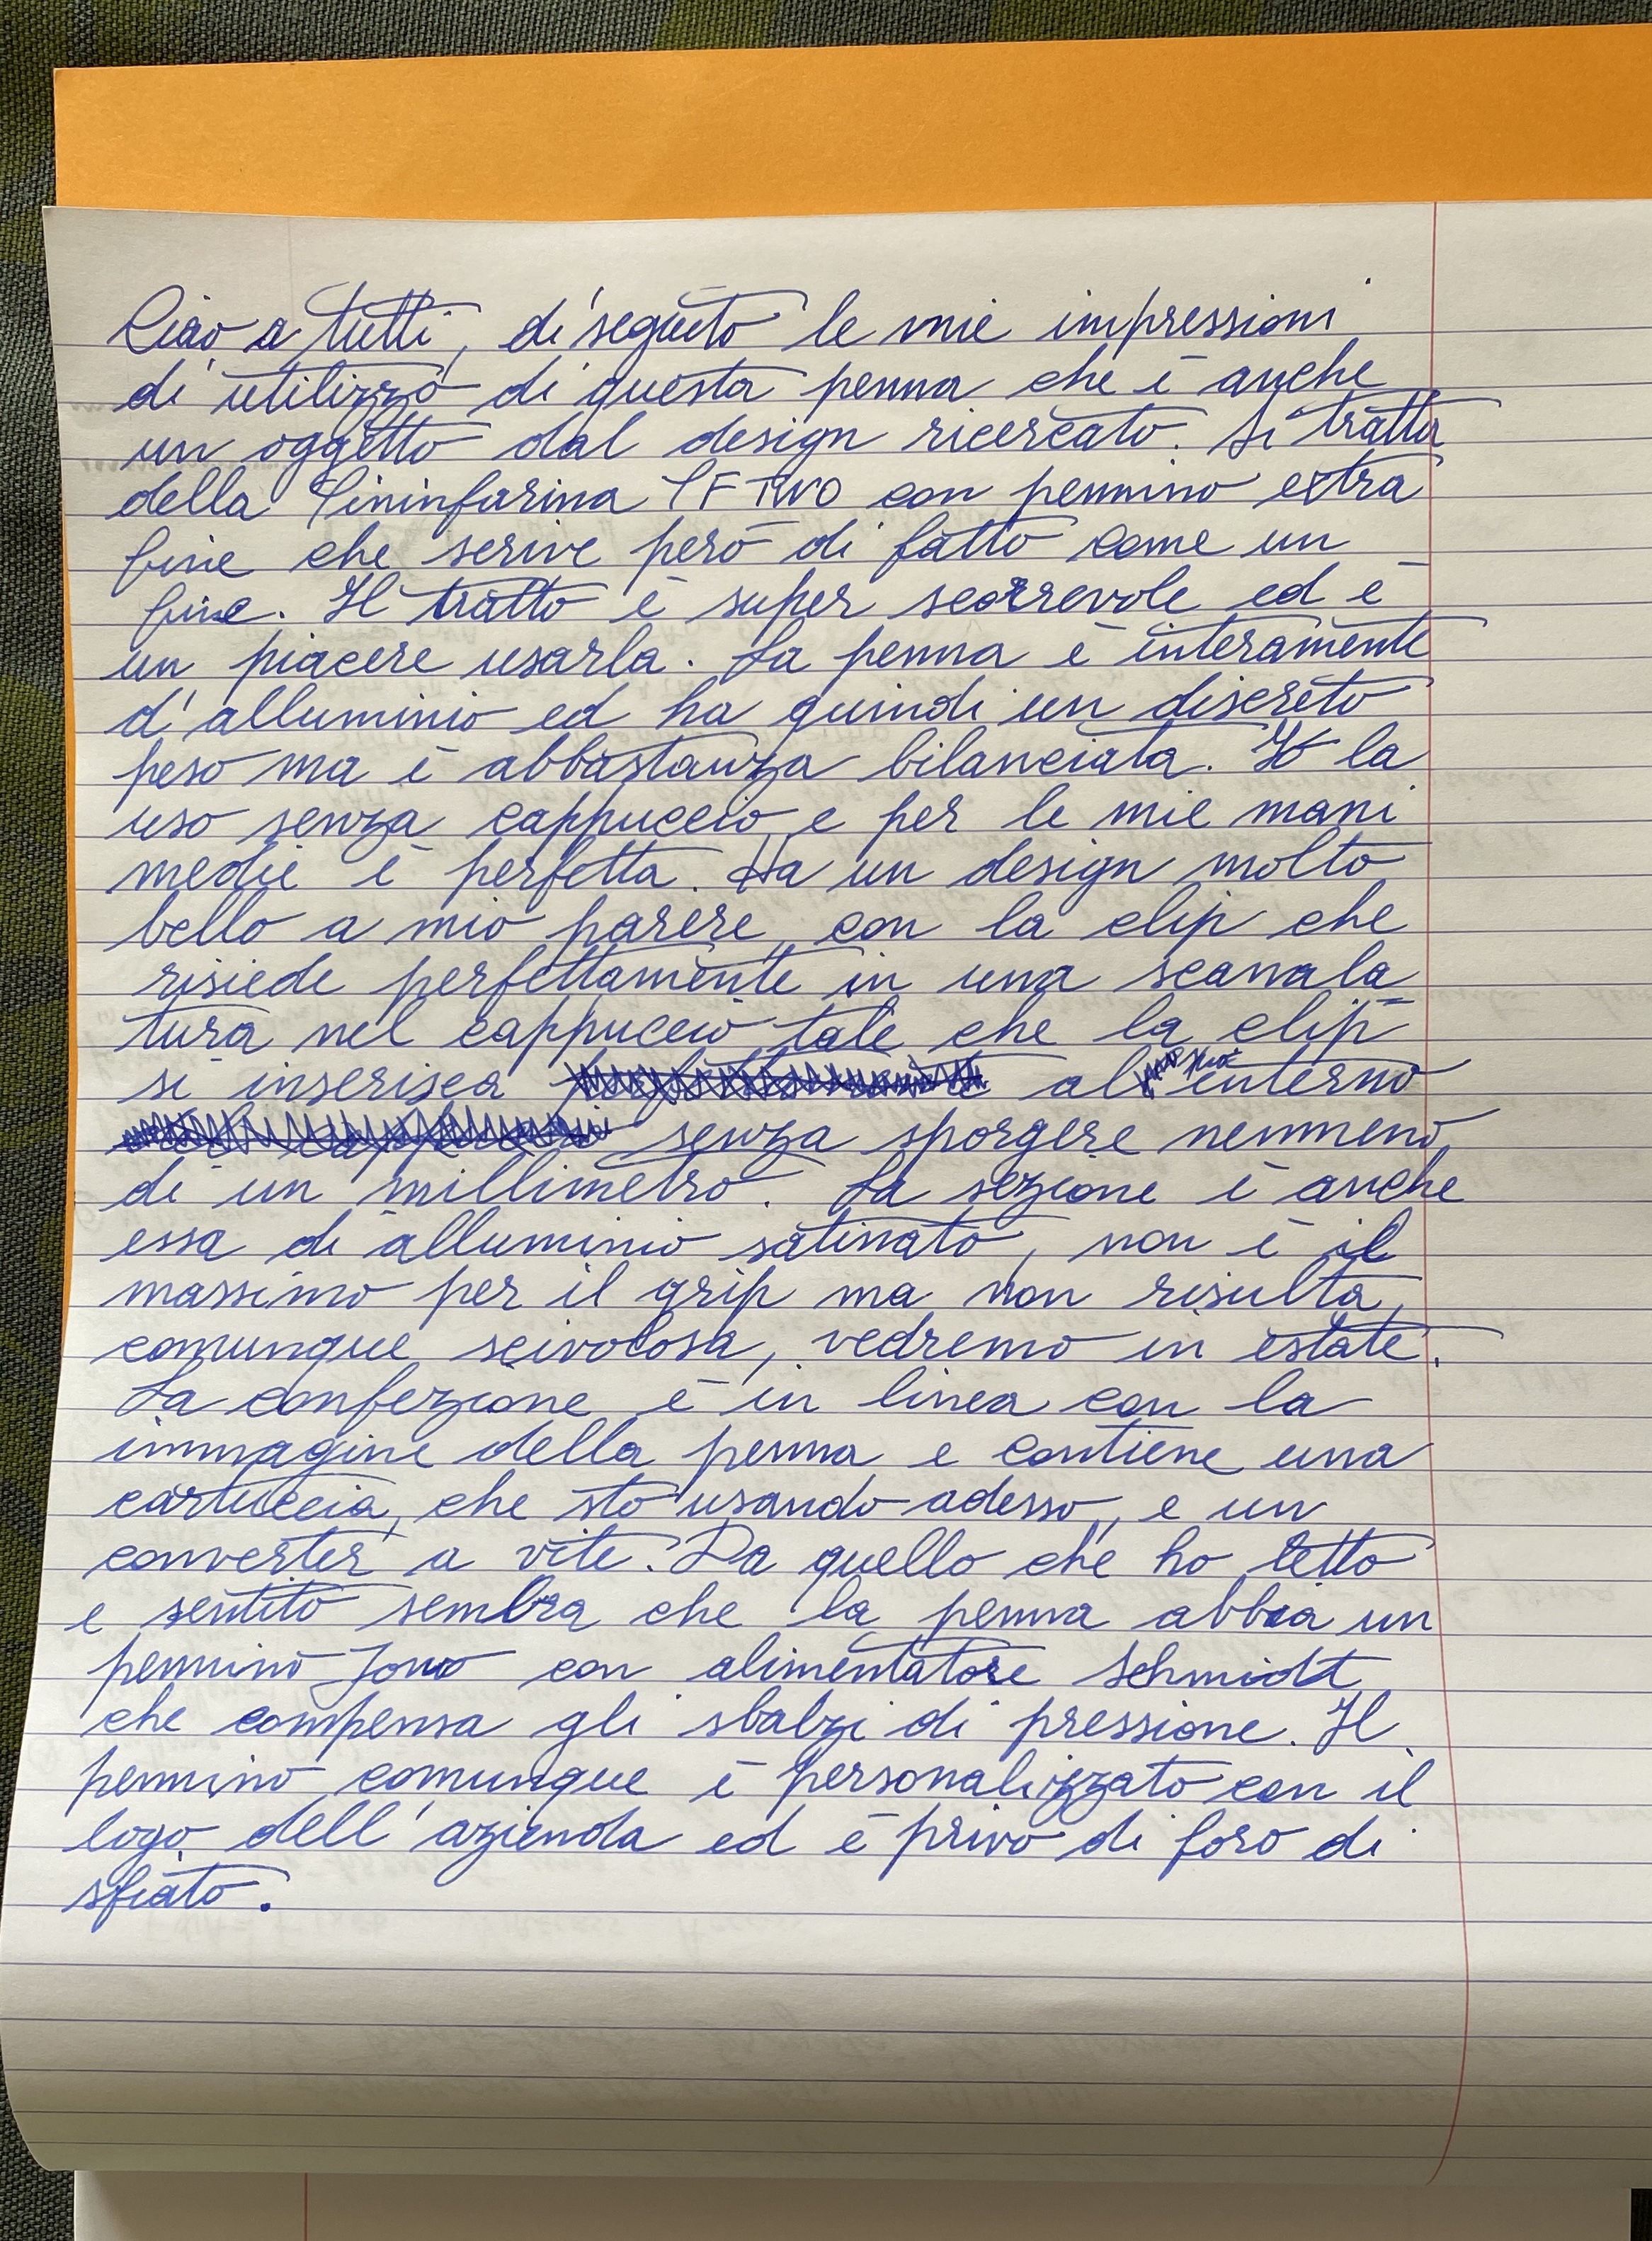 Ciao a tutti, di seguito le mie impressioni
di utilizzo di questa penna che è anche
un oggetto dal design ricercato. Si tratta
della Pininfarina PF TWO con pennino extra
fine che scrive però di fatto come un
fine. Il tratto è super scorrevole ed è
un piacere usarla. La penna è interamente
d'alluminio ed ha quindi un discreto
peso ma è abbastanza bilanciata. Io la
uso senza cappuccio e per le mie mani
medie è perfetta. Ha un design molto
bello a mio parere, con la clip che
risiede perfettamente in una scanala
tura nel cappuccio tale che la clip
si inserisca al suo interno
senza sporgere nemmeno
di un millimetro. La sezione è anche
essa di alluminio satinato, non è il
massimo per il grip ma non risulta
comunque scivolosa, vedremo in estate.
La confezione è in linea con la
immagine della penna e contiene una
cartuccia, che sto usando adesso, e un
converter a vite. Da quello che ho letto
e sentito sembra che la penna abbia un
pennino Jowo con alimentatore Schmidt
che compensa gli sbalzi di pressione. Il
pennino comunque è personalizzato con il
logo dell'azienda ed è privo di foro di
sfiato.